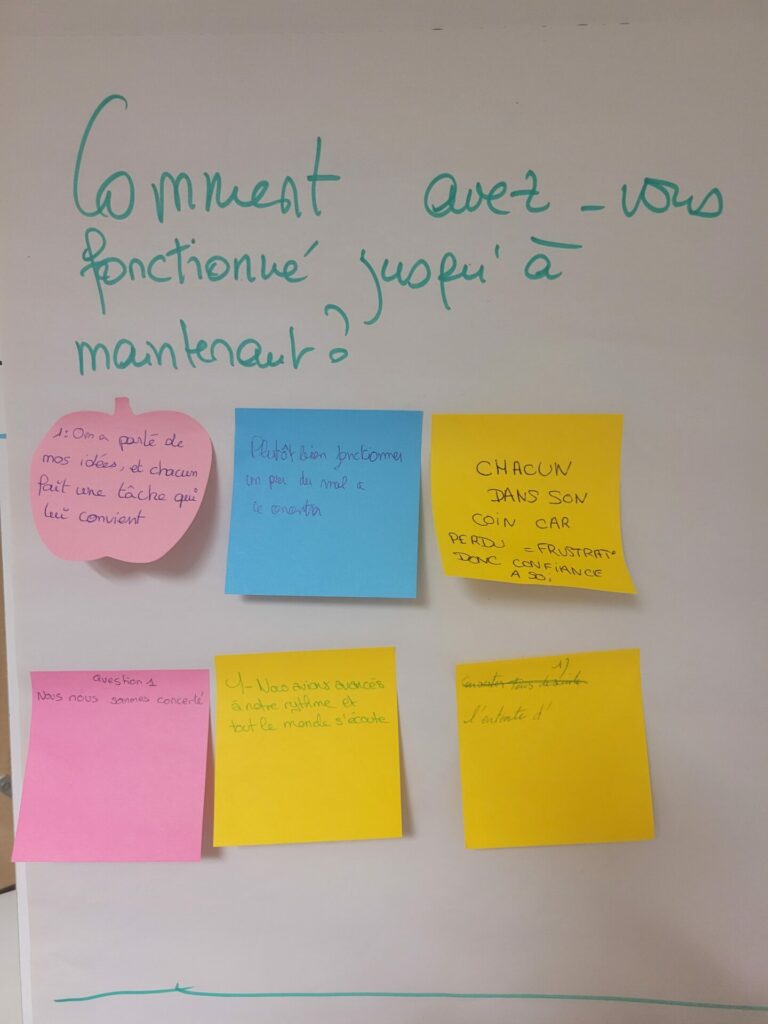 Comment avez-vous
fonctionné jusqu'à
maintenant?
1: On a parlé de
nos idées, et chacun
fait une tâche qui
lui convient
Plutôt bien fonctionner
un peu du mal a
ce
CHACUN
DANS SON
COIN CAR
PERDU = FRUSTRAT°
DONC CONFIANCE
A SOI
Question 1
Nous nous sommes concerté
1- Nous avions avancés
à notre rythme et
tout le monde s'écoute
1)
l'entente d'